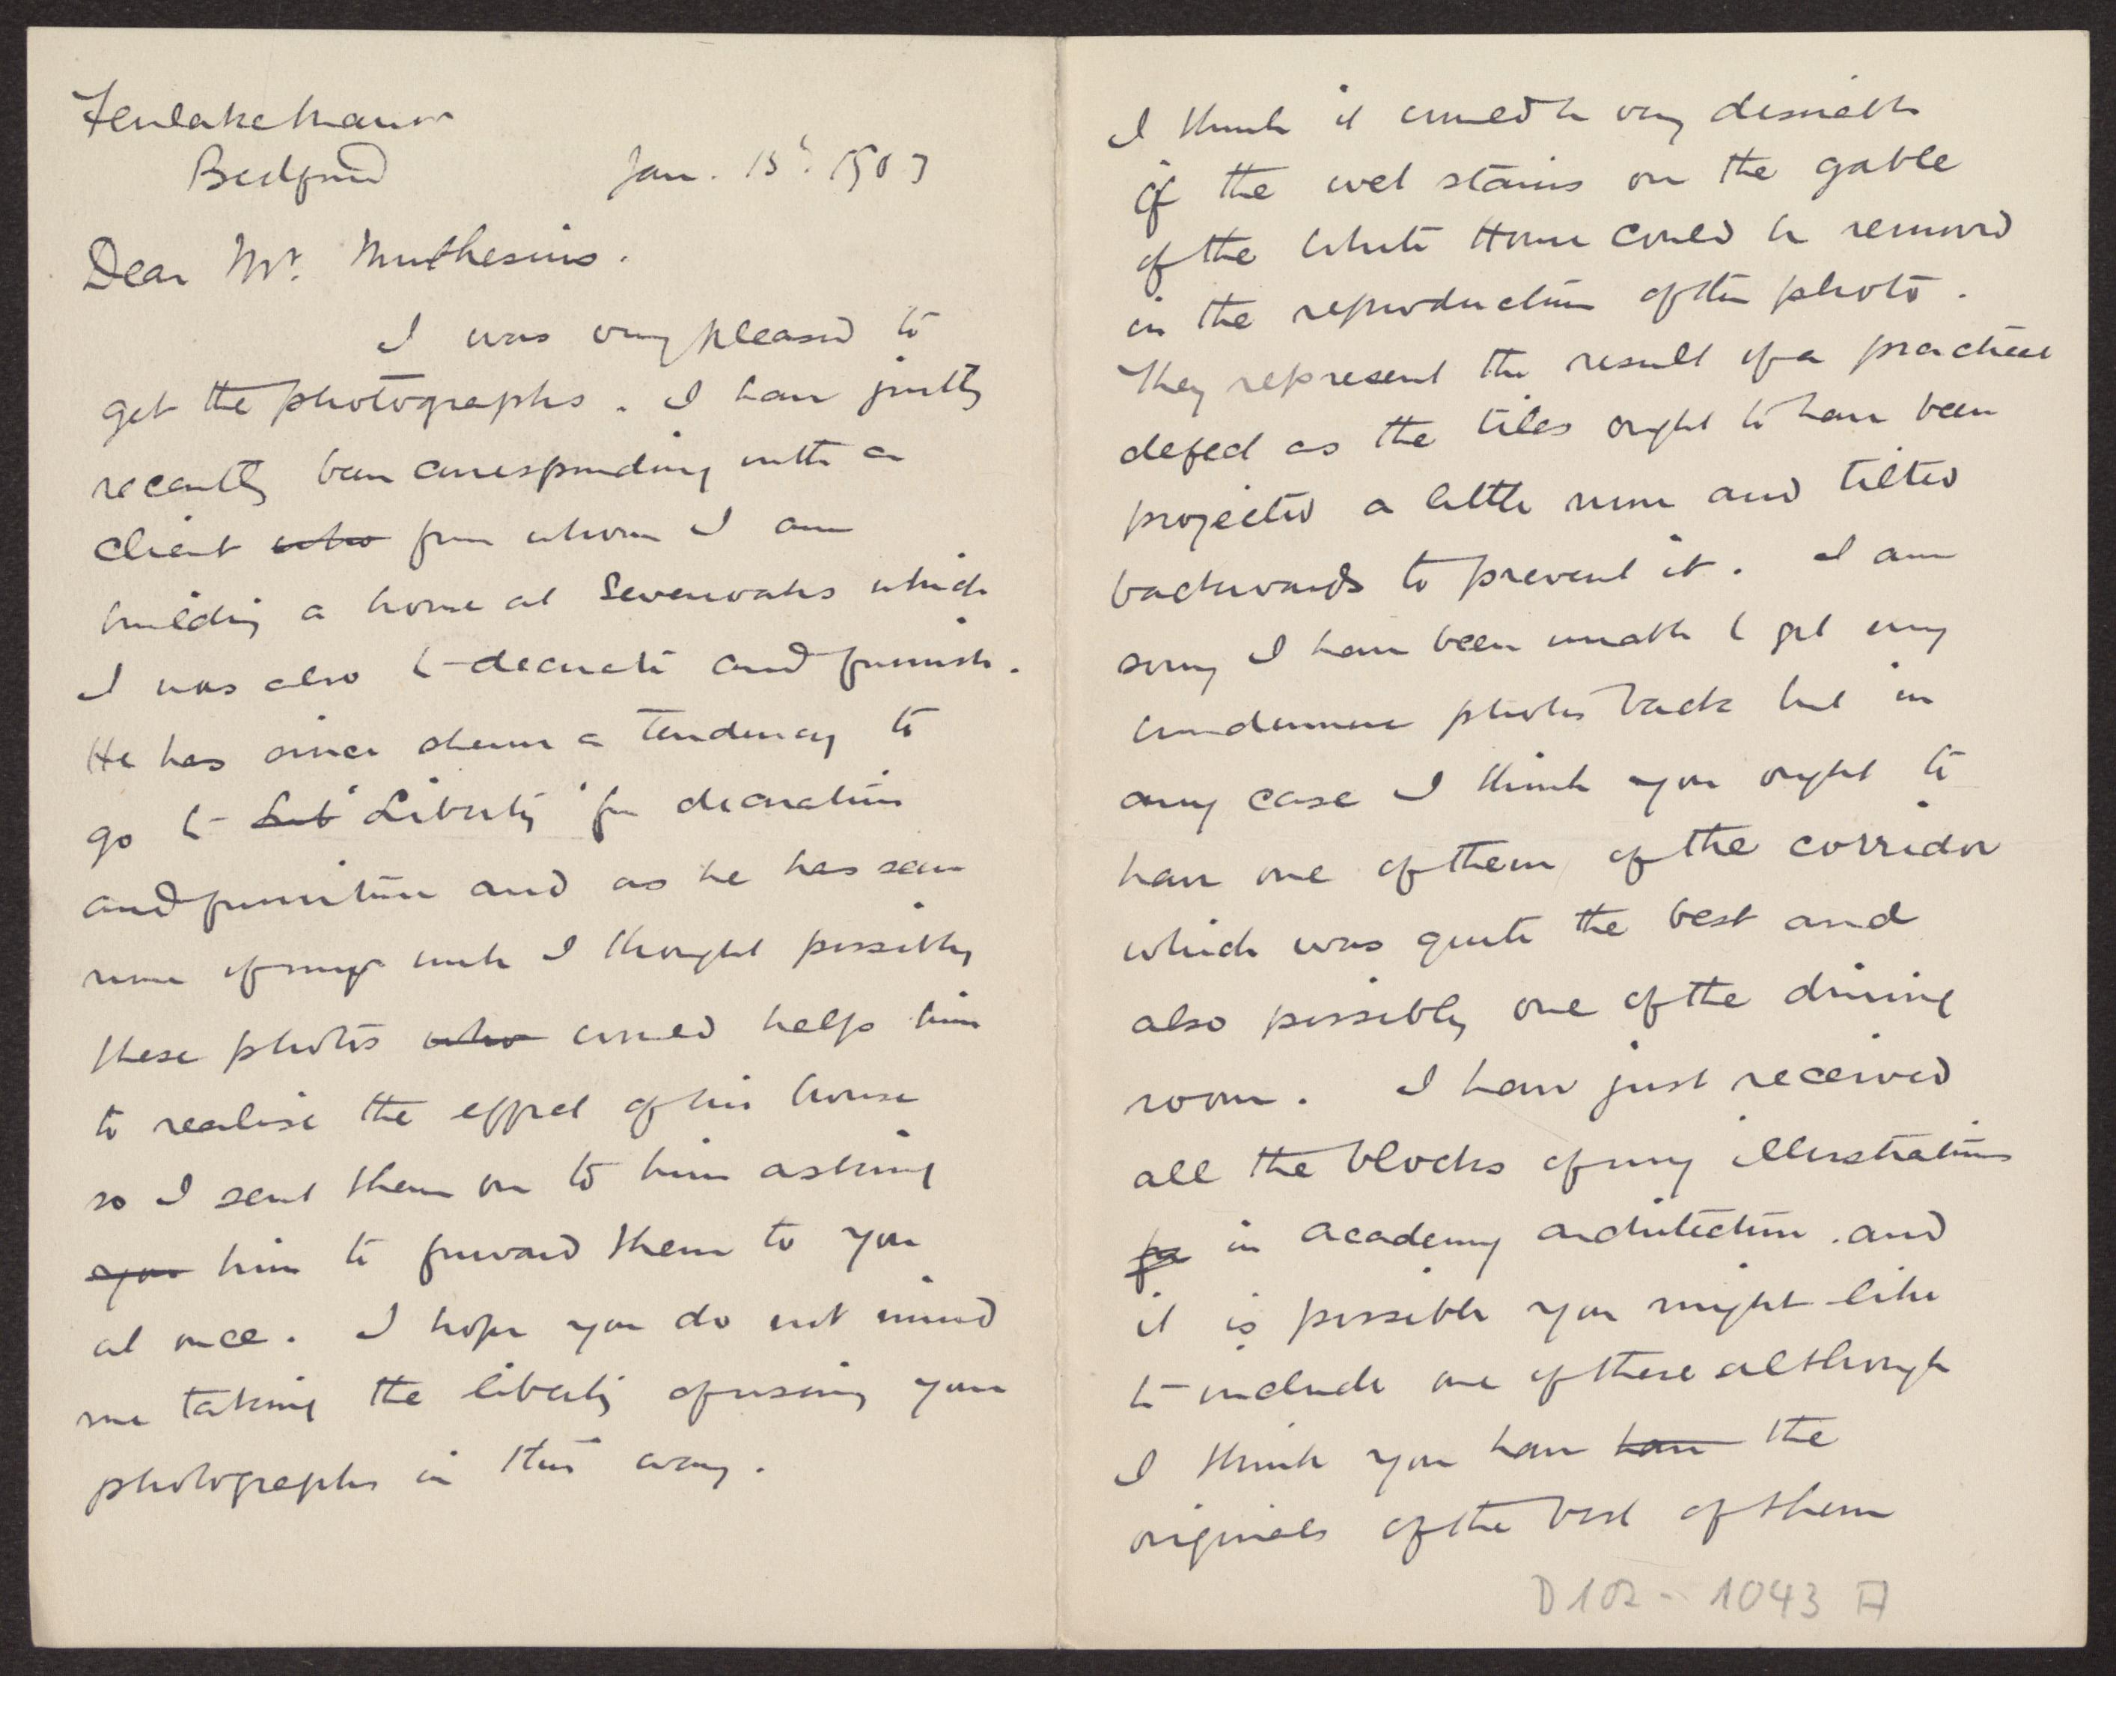 Fenlake Manor
Bedford Jan. 15th. 1903
Dear Mr. Muthesius.
I was very pleased to
get the photographs. I have just
recently been corresponding with a
client who from whom I am
building a house at Sevenoaks which
I was also to decorate and furnish.
He has since shewn a tendency to
go to Lib "Liberty" for decoration
and furniture and as he has seen
none of my work I thought possibly
these photos who could help him
to realise the effect of his house
so I sent them on to him asking
you him to forward them to you
at once. I hope you do not mind
me taking the liberty of using your
photographs in this way.
I think it would be very desirable
if the wet stains on the gable
of the White House could be removed
in the reproduction of the photo.
They represent the result of a practical
defect as the tiles ought to have been
projected a little more and tilted
backwards to prevent it. I am
sorry I have been unable to get my
Windermere photos back but in
any case I think you ought to
have one of them of the corridor
which was quite the best and
also possibly one of the dining
room. I have just received
all the blocks of my illustrations
in academy architecture. and
it is possible you might like
to include one of these although
I think you have have the
originals of the best of them
D102-1043 A